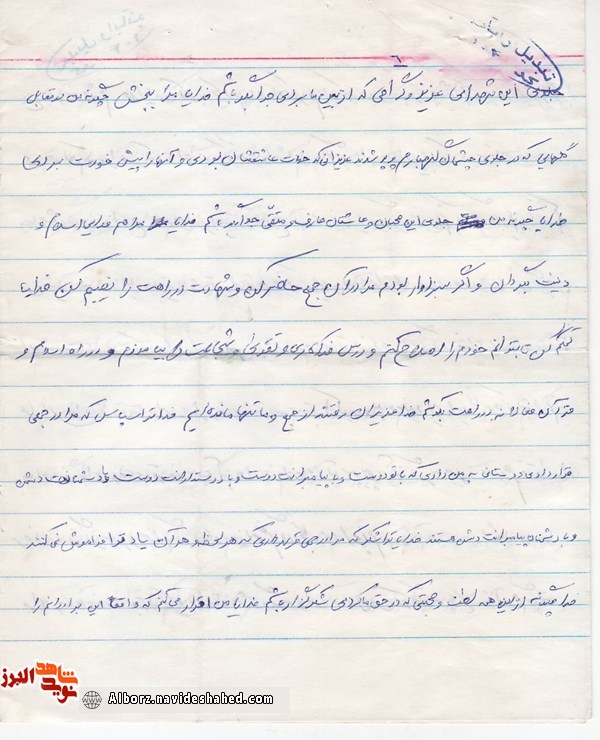 ۶
تبدیل
جلوی این شهدای عزیز و گرامی که از بین ما بسوی خدا جدا گشته باشم خدایا مرا ببخش چگونه من در مقابل
گلهایی که در جلوی چشمان گنهبارم پرپر شدند عزیزانی که خودت عاشقشان بودی و آنها را پیش خودت بردی
خدایا چگونه من جلوی این محبان و عاشقان عارف و متقی جوابگو باشم خدایا مرا هم فدایی اسلام و
دینت بگردان و اگر سزاوار بودم مرا در آن جمع حاضر کن و شهادت در راهت را نصیبم کن خدایا
کمکم کن تا بتوانم خودم را اصلاح کنم و درس فداکاری و تقوی و شجاعت را بیاموزم و در راه اسلام و
قرآن عاشقانه در راهت بکوشم خدا عزیزان رفتند از جمع و ما تنها مانده ایم خدا ترا سپاس که مرا در جمعی
قرار دادی و دوستانی به من دادی که با تو دوست و با پیامبرانت دوست و با دوستدارانت دوست و با دشمنانت دشمن
و با دشمنان پیامبرانت دشمن هستند خدایا ترا شکر که مرا در جمعی قرار دادی که هر لحظه و هر آن یاد تو را فراموش نمی کنند
خدا چگونه از این همه لطف و محبتی که در حق ما کردی شکرگزار باشم خدایا من اقرار می کنم که واقعاً این برادرانم را
شاهد نوید البرز
Alborz.navideshahed.com